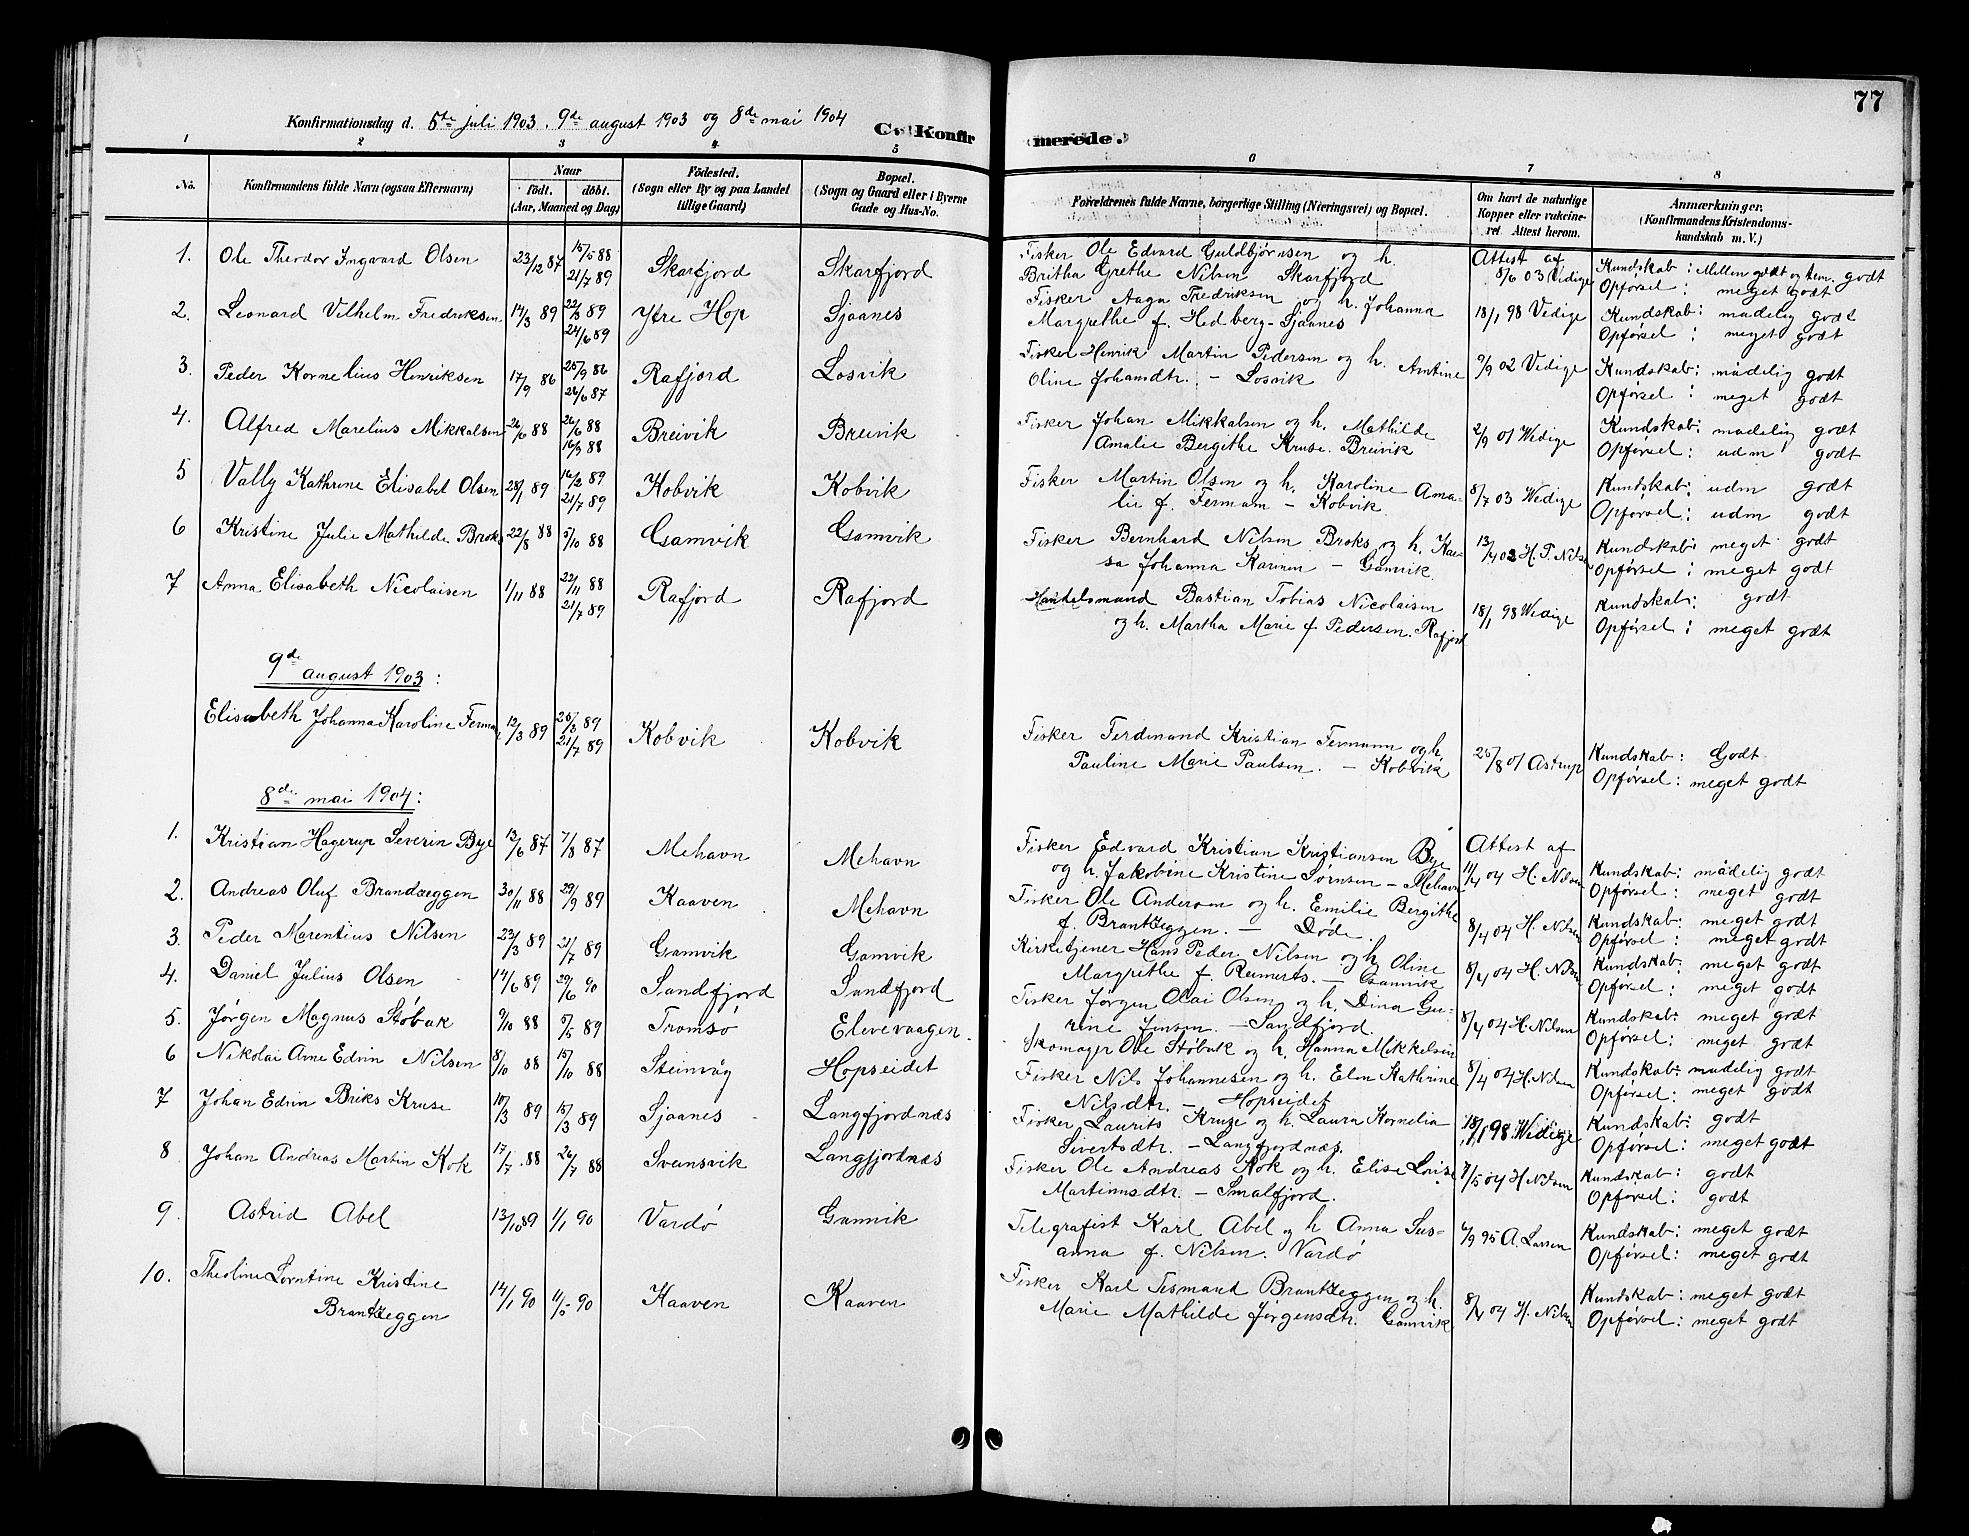 77
Konfirmationsdag d. 5te juli 1903, 9de august 1903 og 8de mai 1904
C. Konfirmerede.
1 2 3 4 5 6 7 8
No. Konfirmandens fulde Navn (ogsaa Efternavn) Naar födt. döbt. (Aar, Maaned og Dag) Födested. (Sogn eller By og paa Landet tillige Gaard) Bopæl. (Sogn og Gaard eller i Byerne Gade og Hus-No. Forældrenes fulde Navne, borgerlige Stilling (Næringsvei) og Bopæl. Om havt de naturlige Kopper eller vakcineret. Attest herom. Anmærkninger. (Konfirmandens Kristendomskundskab m. V.)
1. Ole Theodor Ingvard Olsen 23/12 87 15/5 88 21/7 89 Skarfjord Skarfjord Fisker Ole Edvard Guldbjørnsen og h. Attest af
Britha Grethe Nilsen Skarfjord 8/6 03 Vedige Kundskab: Mellem godt og tem. godt
Opførsel: meget godt
2. Leonard Vilhelm Fredriksen 14/3 89 22/3 89 24/6 89 Ytre Hop Sjaanes Fisker Aaga Fredriksen og h. Johanna
Margrethe f. Hedberg - Sjaanes 18/1 98 Vedige Kundskab: mådelig godt
Opførsel: meget godt
3. Peder Kornelius Henriksen 17/9 86 25/9 86 26/6 87 Rafjord Losvik Fisker Henrik Martin Pedersen og h. Amtine
Oline Johansdtr. - Losvik 9/9 02 Vedige Kundskab: mådelig godt
Opførsel: meget godt
4. Alfred Marelius Mikkalsen 26/6 88 26/6 88 16/9 88 Breivik Breivik Fisker Johan Mikkalsen og h. Mathilde
Amalie Bergithe Kruse. Breivik 2/9 01 Wedige Kundskab: mådelig godt
Opførsel: udm godt
5 Vally Kathrine Elisabet Olsen 28/1 89 16/2 89 21/7 89 Kobvik Kobvik Fisker Martin Olsen og h. Karoline Ama-
lie f. Fermann - Kobvik 8/7 03 Wedige Kundskab: udm godt
Opførsel: udm godt
6 Kristine Julie Mathilde Broks 22/8 88 5/10 88 Gamvik Gamvik Fisker Bernhard Nilsen Broks og h. Kae-
sa Johanna Karinen - Gamvik 13/4 03 H. P. Nilsen Kundskab: meget godt
Opførsel: meget godt
7 Anna Elisabeth Nicolaisen 1/11 88 22/11 88 21/7 89 Rafjord Rafjord Handelsmand Bastian Tobias Nicolaisen
og h. Martha Marie f Pedersen. Rafjord 18/1 98 Wedige Kundskab: godt
Opførsel: meget godt
9de august 1903:
Elisabeth Johanna Karoline Fermann 12/3 89 26/3 89 21/7 89 Kobvik Kobvik Fisker Ferdinand Kristian Fermann og h.
Pauline Marie Paulsen. - Kobvik 26/8 01 Astrup Kundskab: Godt
Opførsel: meget godt
8de mai 1904:
1. Kristian Hagerup Severin Bye 13/6 87 7/8 87 Mehavn Mehavn Fisker Edvard Kristian Kristiansen Bye Attest af
og h. Jakobine Kristine Sørnsen - Mehavn 11/4 04 H. Nilsen Kundskab: mådelig godt
Opførsel: meget godt
2. Andreas Oluf Brandzeggen 30/11 88 29/9 89 Kaaven Mehavn Fisker Ole Andersen og h. Emilie Bergithe
f. Brantzeggen. - Døde. 8/4 04 H. Nilsen Kundskab: meget godt
Opførsel: meget godt
3. Peder Marentius Nilsen 23/3 89 21/7 89 Gamvik Gamvik Kirketjener Hans Peder Nilsen og h Oline
Margrethe f. Reinerts. - Gamvik 8/4 04 H. Nilsen Kundskab: meget godt
Opførsel: meget godt
4. Daniel Julius Olsen 14/6 89 29/6 90 Sandfjord Sandfjord Fisker Jørgen Olai Olsen og h. Dina Gu-
rine Jensen. - Sandfjord. 8/4 04 H. Nilsen Kundskab: meget godt
Opførsel: meget godt
5. Jørgen Magnus Støbak 9/10 88 5/5 89 Tromsø Elevevaagen Skomager Ole Støbak og h. Hanna Mikkelsen 8/4 04 H. Nilsen Kundskab: madelig godt
Opførsel: meget godt
6 Nikolai Arne Edvin Nilsen 8/10 88 15/10 88 Steinvåg Hopseidet Fisker Nils Johannesen og h. Elen Kathrine
Nilsdtr. - Hopseidet
7 Johan Edvin Briks Kruse 10/3 89 15/3 89 Sjaanes Langfjordnæs Fisker Laurits Kruse og h. Laura Kornelia
Sivertsdtr. - Langfjordnæs 18/1 98. Wedige Kundskab: godt
Opførsel: meget godt
8 Johan Andreas Martin Kok 17/7 88 26/7 88 Svensvik Langfjordnæs Fisker Ole Andreas Kok og h. Elise Lovise
Martinusdtr. - Smalfjord. 7/5 04 H. Nilsen Kundskab: godt
Opførsel: godt
9. Astrid Abel 13/10 89 1/1 90 Vardø Gamvik Telegrafist Karl Abel og h Anna Sus-
anna f. Nilsen. Vardø 6/9 95 A. Larsen Kundskab: meget godt
Opførsel: meget godt
10. Theoline Lorntine Kristine
Brantzeggen 14/1 90 11/5 90 Kaaven Kaaven Fisker Karl Tesmand Brantzeggen og h.
Marie Mathilde Jørgensdtr. Gamvik 8/4 04 H. Nilsen Kundskab: meget godt
Opførsel: meget godt